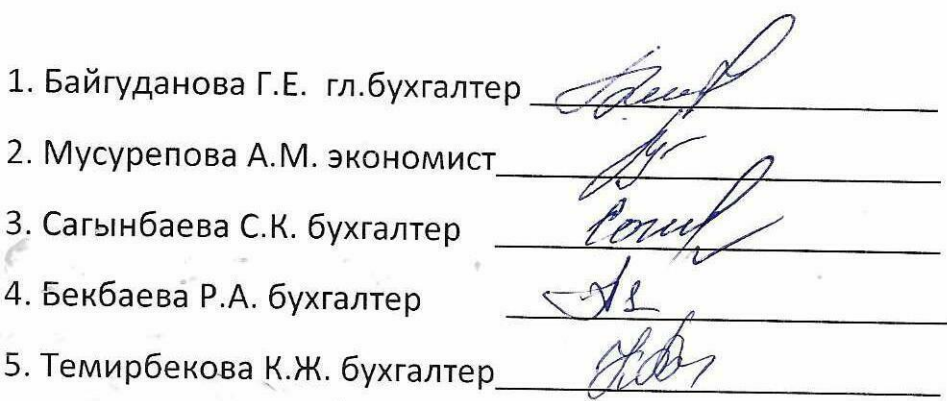 1. Байгуданова Г.Е. гл.бухгалтер
2. Мусурепова А.М. экономист
3. Сагынбаева С.К. бухгалтер
4. Бекбаева Р.А. бухгалтер
5. Темирбекова К.Ж. бухгалтер